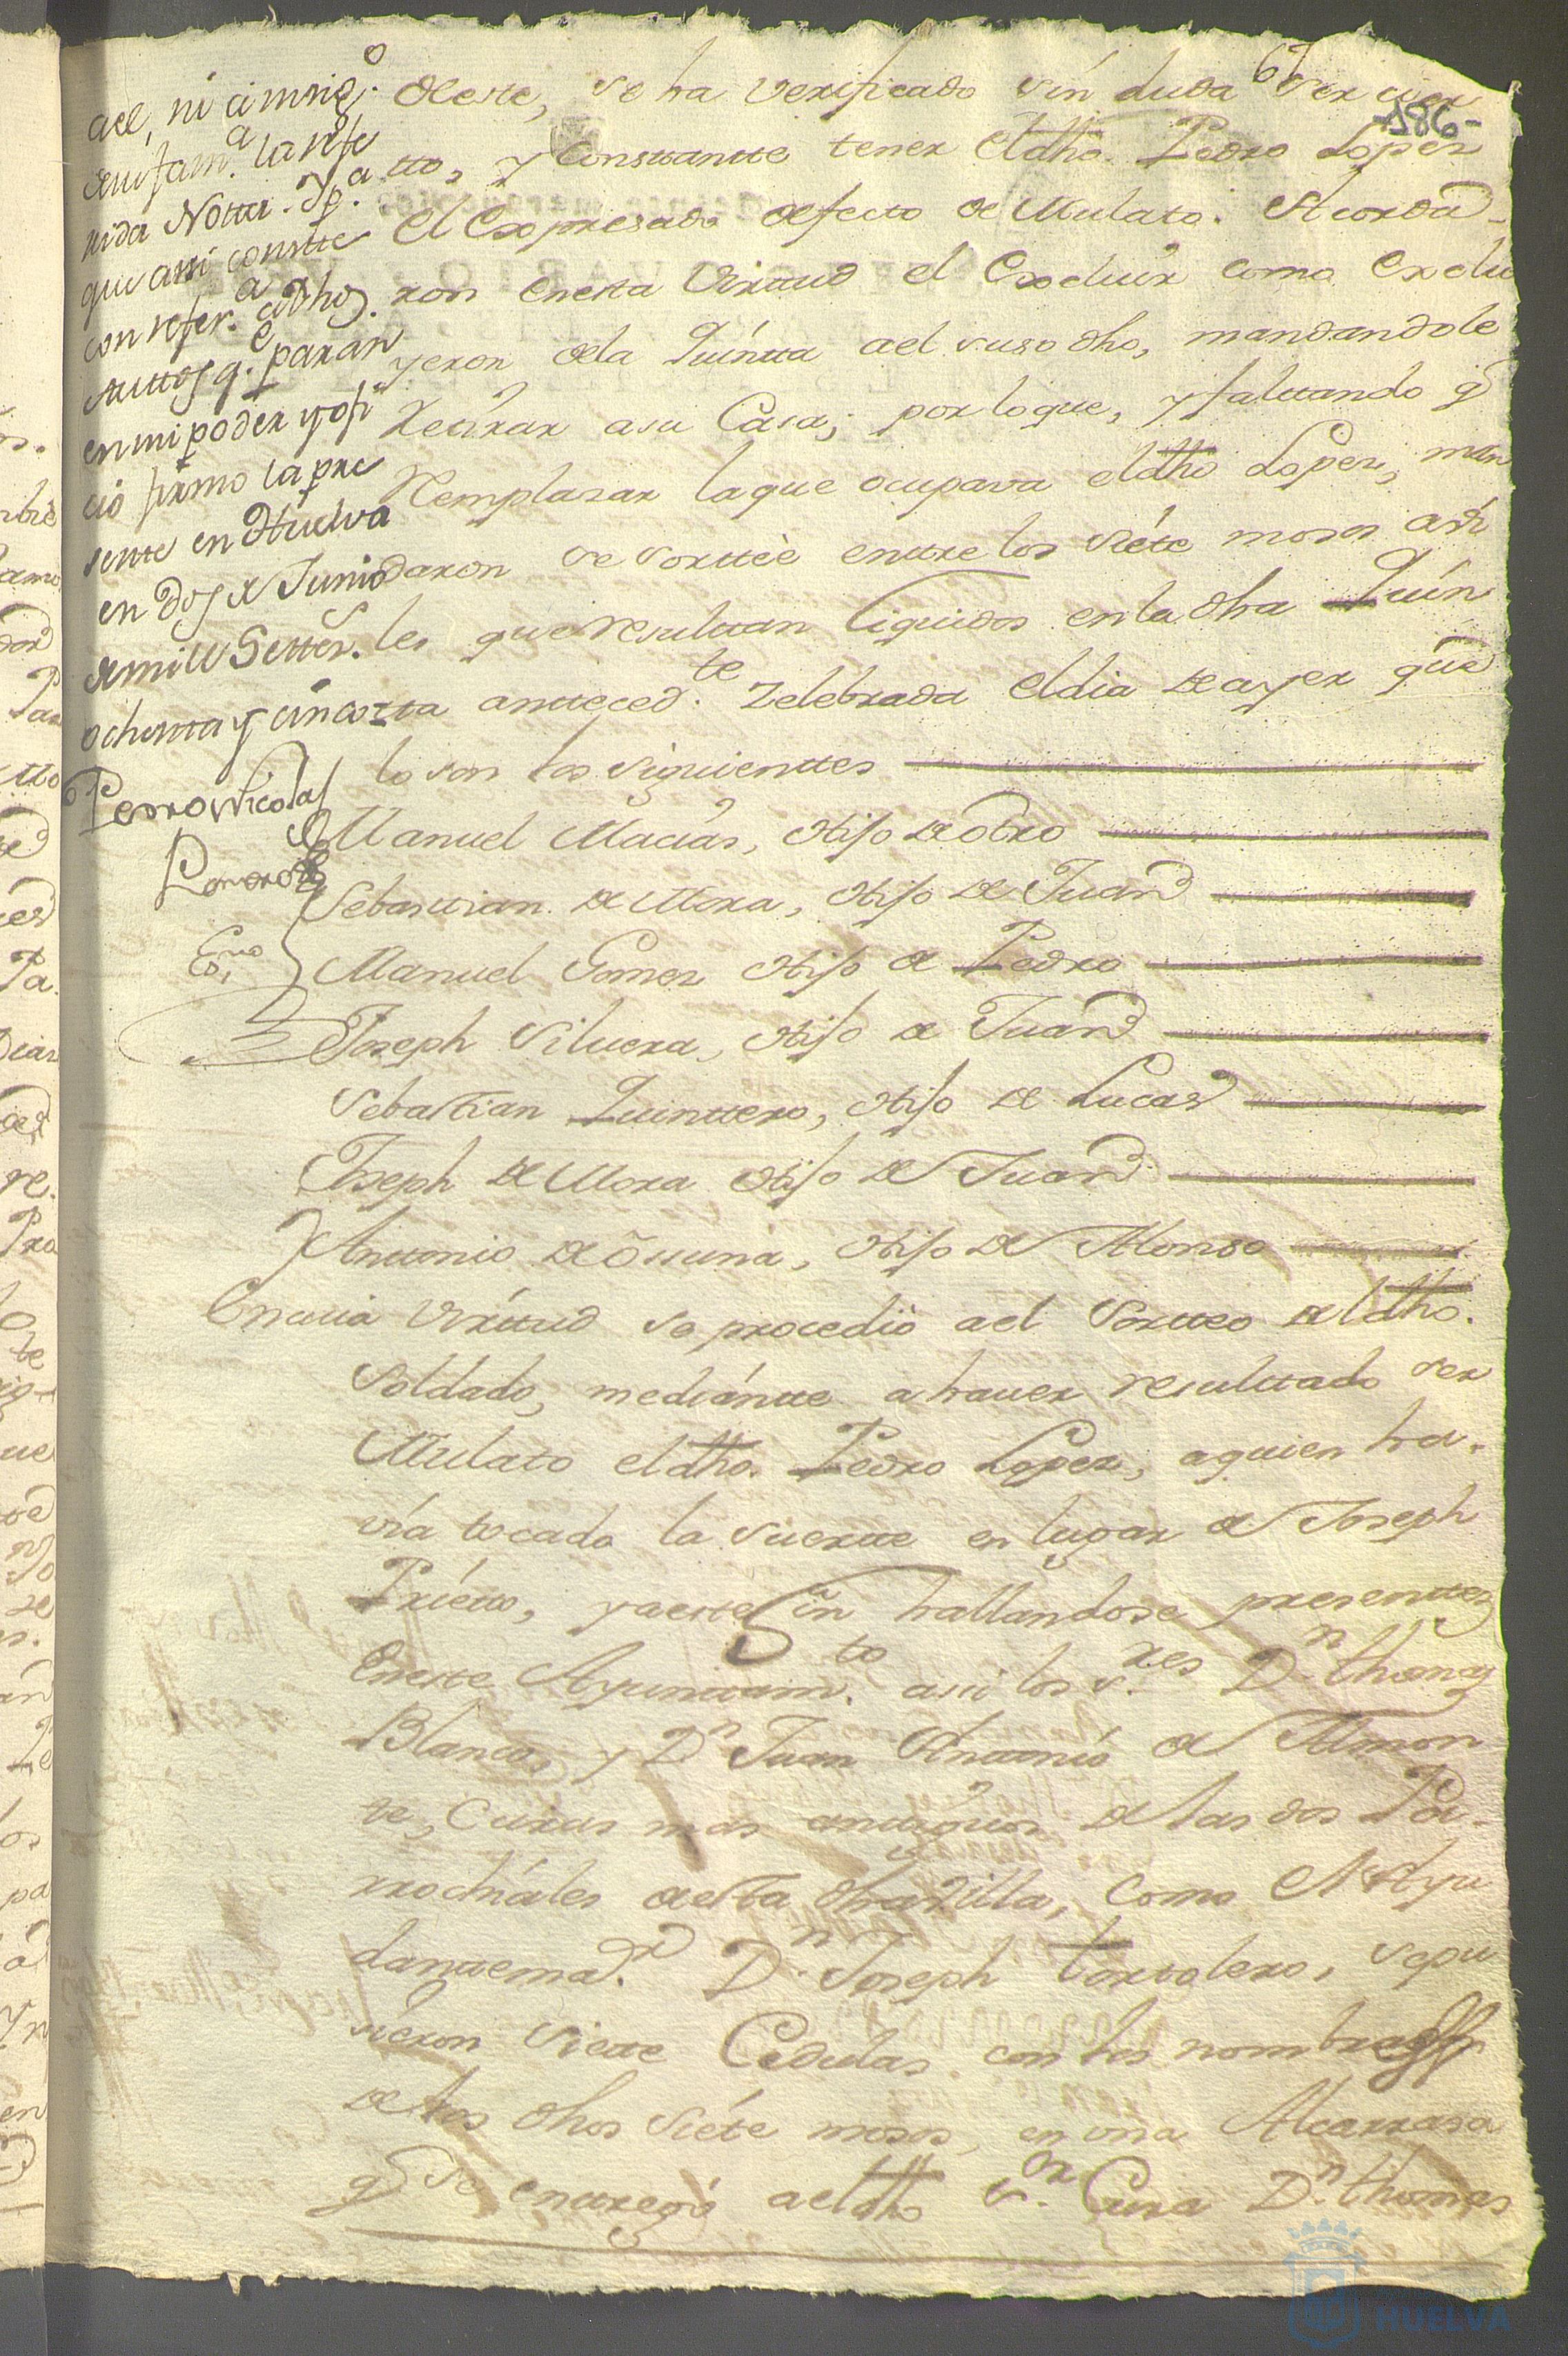 67
186-
ael, ni a mrigo.
a su fam.a la refe
rida Notta. Y p.a
que assi conste
con refer.a a dhos.
Auttos q.e paran
en mi poder y ofi
cio firmo la pre
sente en Huelva
en dos de Junio
de mill Setter.s
ochenta y cinco
Pedro Nicolas
Romero
Essno
de este, se ha verificado sin duda ser cier
tto, y constantte tener el dho. Pedro Lopez
el Expresado defecto de Mulato. Acorda-
ron en esta Virtud el Excluir como Exclu
yeron de la Quintta ael suso dho, mandandole
Retirar a su Casa; por lo que, y faltando q.e
Remplasar la que ocupava el dho Lopez, man
daron se sorttèe entre los siéte mosos avi
les que resulttan liquidos en la dha Quin
ta anteced.te Zelebrada el dia de ayer que
lo son los siguienttes
Manuel Macias, Hijo de otro
Sebasttian de Mora, Hijo de Juan
Manuel Gomez Hijo de Pedro
Joseph Silvera, Hijo de Juan
Sebastian Quinttero, Hijo de Lucas
Joseph de Mora Hijo de Juan
Y Antonio de Ossuna, Hijo de Alonso
En cuia Virttud se procediò ael Sortteo del dho.
Soldado, mediántte a haver resulttado ser
Mulato el dho. Pedro Lopez, a quien ha-
vía tocado la suertte en lugar de Joseph
Priétto, y a este fin hallandose presenttes
En este Ayunttam.to asi los S.res D.n thomas
Blanco, y D.n Juan Anttonio de Almon
te, Curas mas antiguos de las dos Pa-
rrochiáles de esta dha Villa, Como el Ayu
dantte ma.r D.n Joseph tortolero, se pu
sieron siete Cedulas con los nombres
de los dhos siéte mosos, en una Alcarrasa
q.e se enttregó ael dho S.or Cura D.n thomas
HUELVA